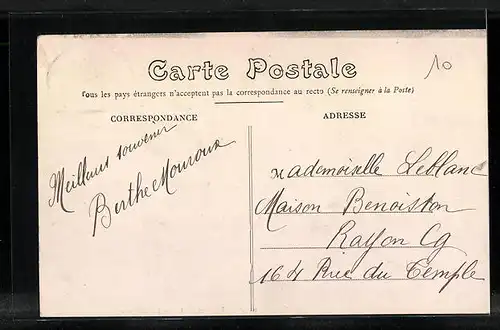 Carte Postale
10
Tous les pays étrangers n'acceptent pas la correspondance au recto (Se renseigner à la Poste)
CORRESPONDANCE
ADRESSE
Meilleurs souvenir
Berthe Mouroux
Mademoiselle Leblanc
Maison Benoiston
Rayon Cg
164 Rue du Temple